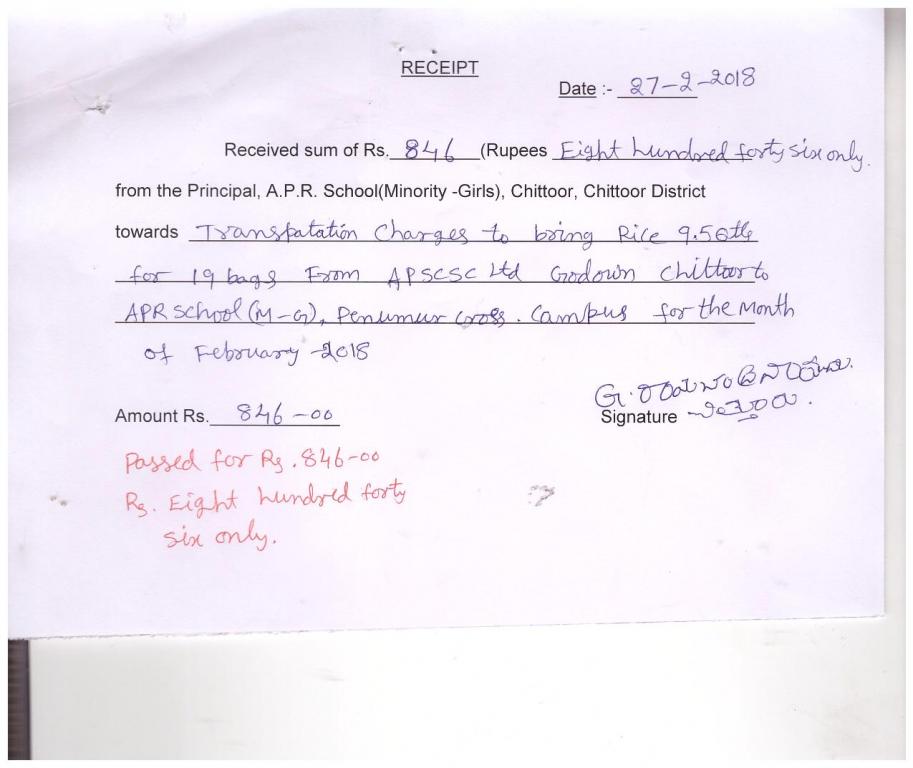 RECEIPT
Date :- 27-2-2018
Received sum of Rs. 846 (Rupees Eight hundred forty six only.
from the Principal, A.P.R. School(Minority -Girls), Chittoor, Chittoor District
towards Transpatation Charges to bring Rice 9.50
for 19 bags From APSCSC Ltd Godown Chittoor to
APR School (M-G), Penumur Cross. Campus for the Month
of February -2018
G.
Amount Rs. 846-00 Signature
Passed for Rs. 846-00
Rs. Eight hundred forty
six only.